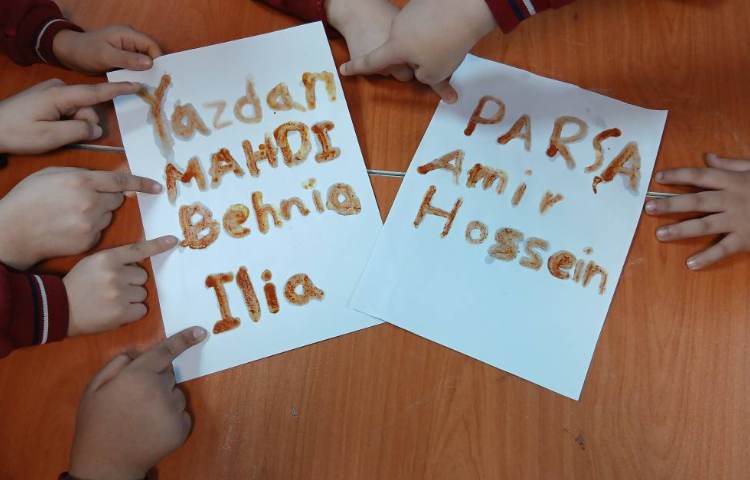 Yazdan
MAHDI
Behnia
Ilia
PARSA
Amir
Hossein